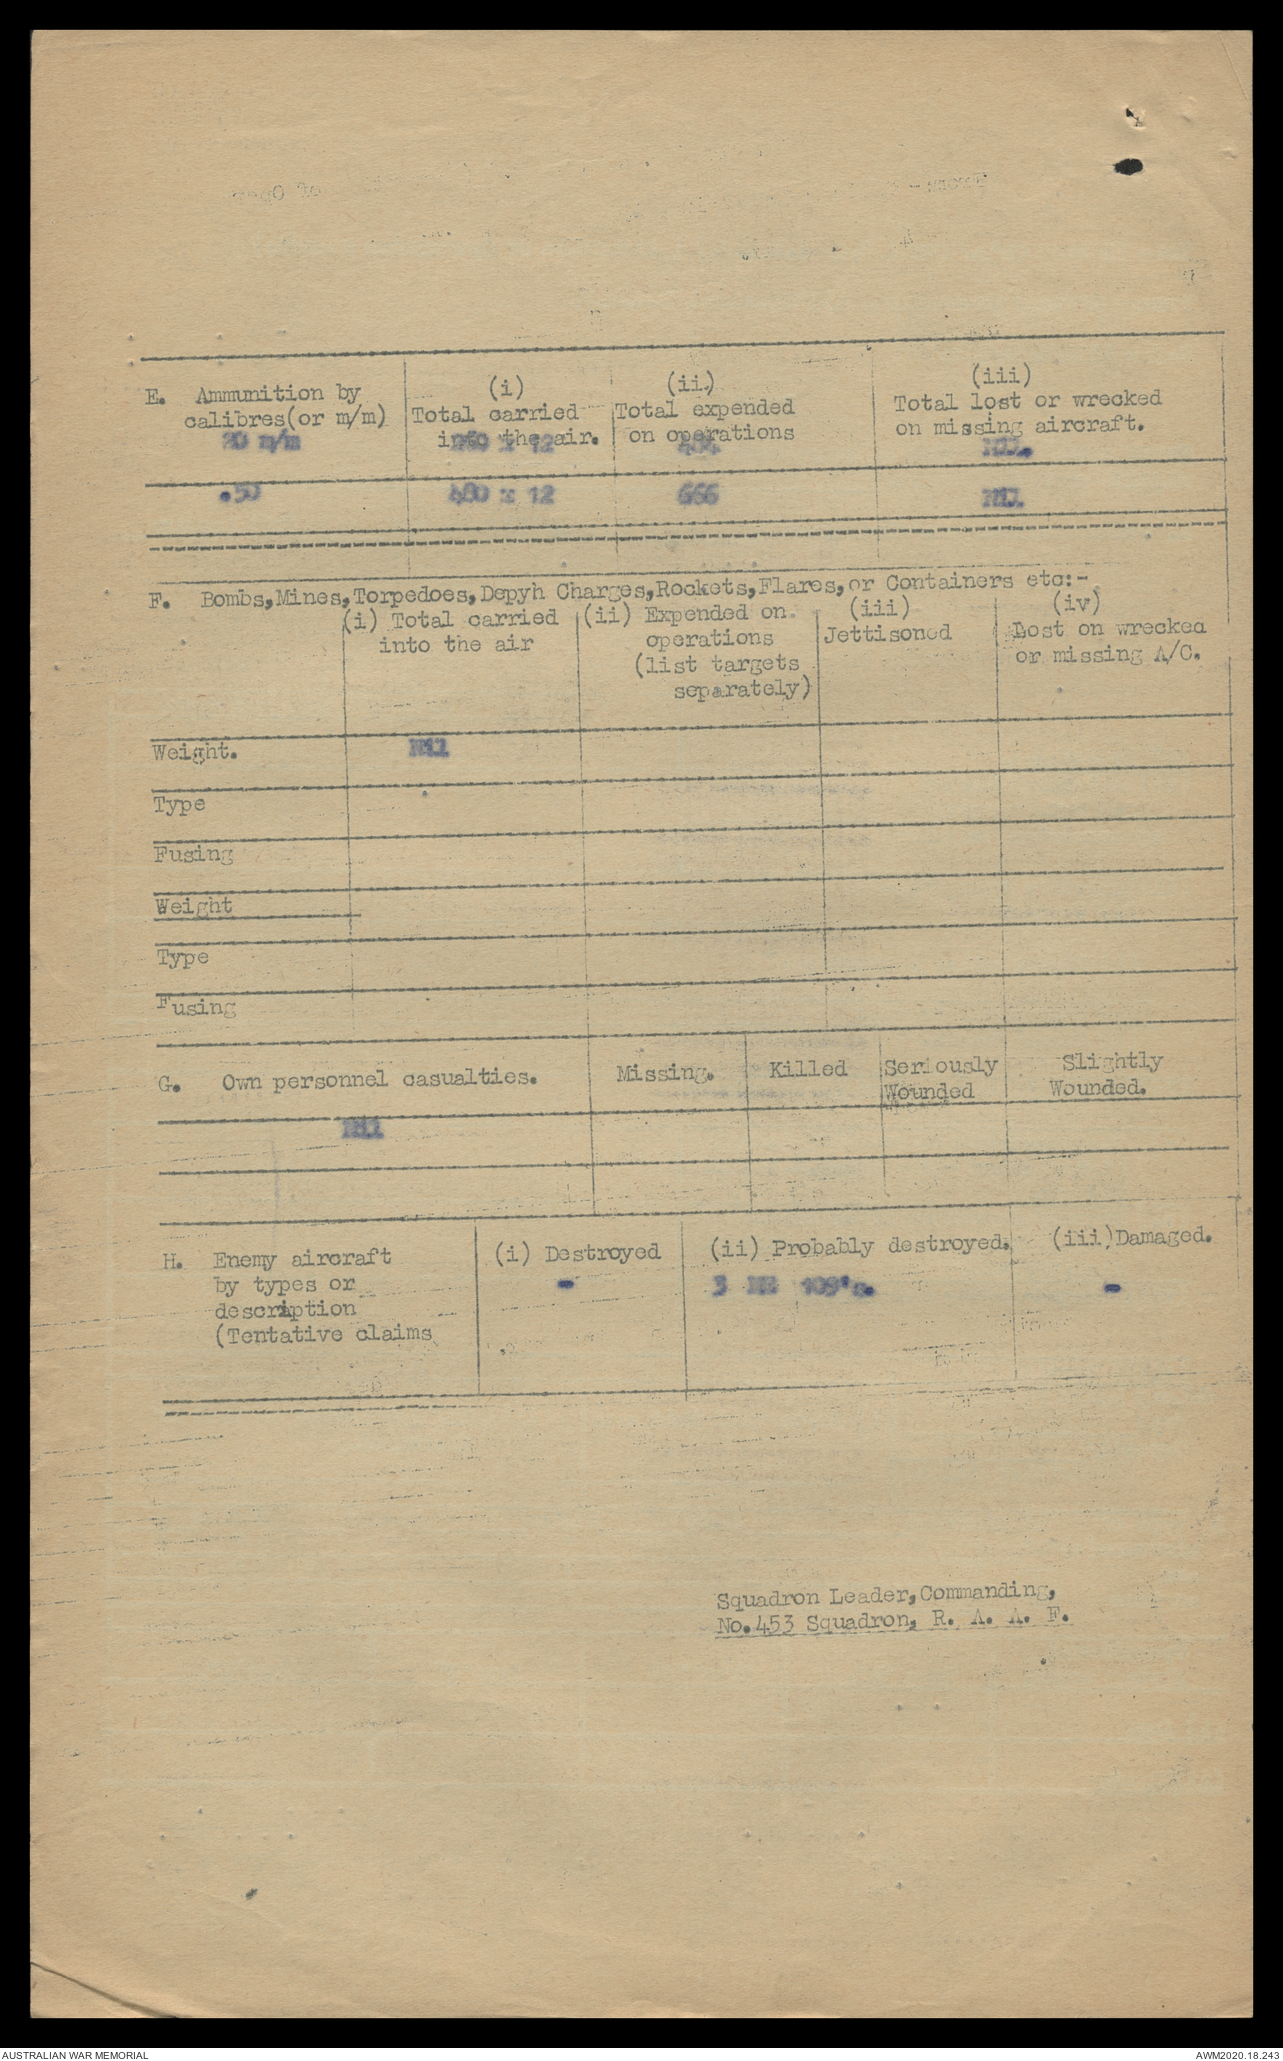 E. Ammunition by calibres(or m/m)
(i) Total carried into the air.
(ii) Total expended on operations
(iii) Total lost or wrecked on missing aircraft.
20 m/m x 12 Nil.
.50 480 x 12 666 Nil.
F. Bombs,Mines,Torpedoes,Depyh Charges,Rockets,Flares,or Containers etc:-
(i) Total carried into the air
(ii) Expended on operations (list targets separately)
(iii) Jettisoned
(iv) Lost on wrecked or missing A/C.
Weight. Nil
Type
Fusing
Weight
Type
Fusing
G. Own personnel casualties. Missing. Killed Seriously Wounded Slightly Wounded.
Nil
H. Enemy aircraft by types or description (Tentative claims
(i) Destroyed
-
(ii) Probably destroyed.
3 ME 109's.
(iii) Damaged.
-
Squadron Leader,Commanding,
No.453 Squadron, R. A. A. F.
AUSTRALIAN WAR MEMORIAL
AWM2020.18.243